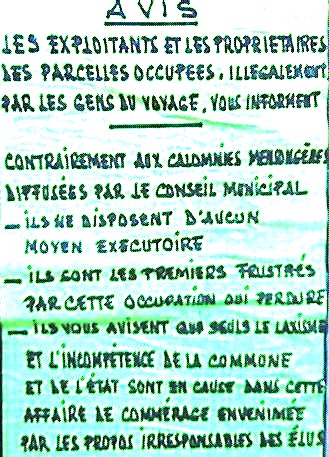 AVIS
LES EXPLOITANTS ET LES PROPRIETAIRES
DES PARCELLES OCCUPEES, ILLEGALEMENT
PAR LES GENS DU VOYAGE, VOUS INFORMENT
CONTRAIREMENT AUX CALOMNIES MENSONGÈRES
DIFFUSÉES PAR LE CONSEIL MUNICIPAL
- ILS NE DISPOSENT D'AUCUN
MOYEN EXECUTOIRE
- ILS SONT LES PREMIERS FRUSTRÉS
PAR CETTE OCCUPATION QUI PERDURE
- ILS VOUS AVISENT QUE SEULS LE LAXISME
ET L'INCOMPÉTENCE DE LA COMMUNE
ET DE L'ÉTAT SONT EN CAUSE DANS CETTE
AFFAIRE DE COMMÉRAGE ENVENIMÉE
PAR LES PROPOS IRRESPONSABLES DES ÉLUS